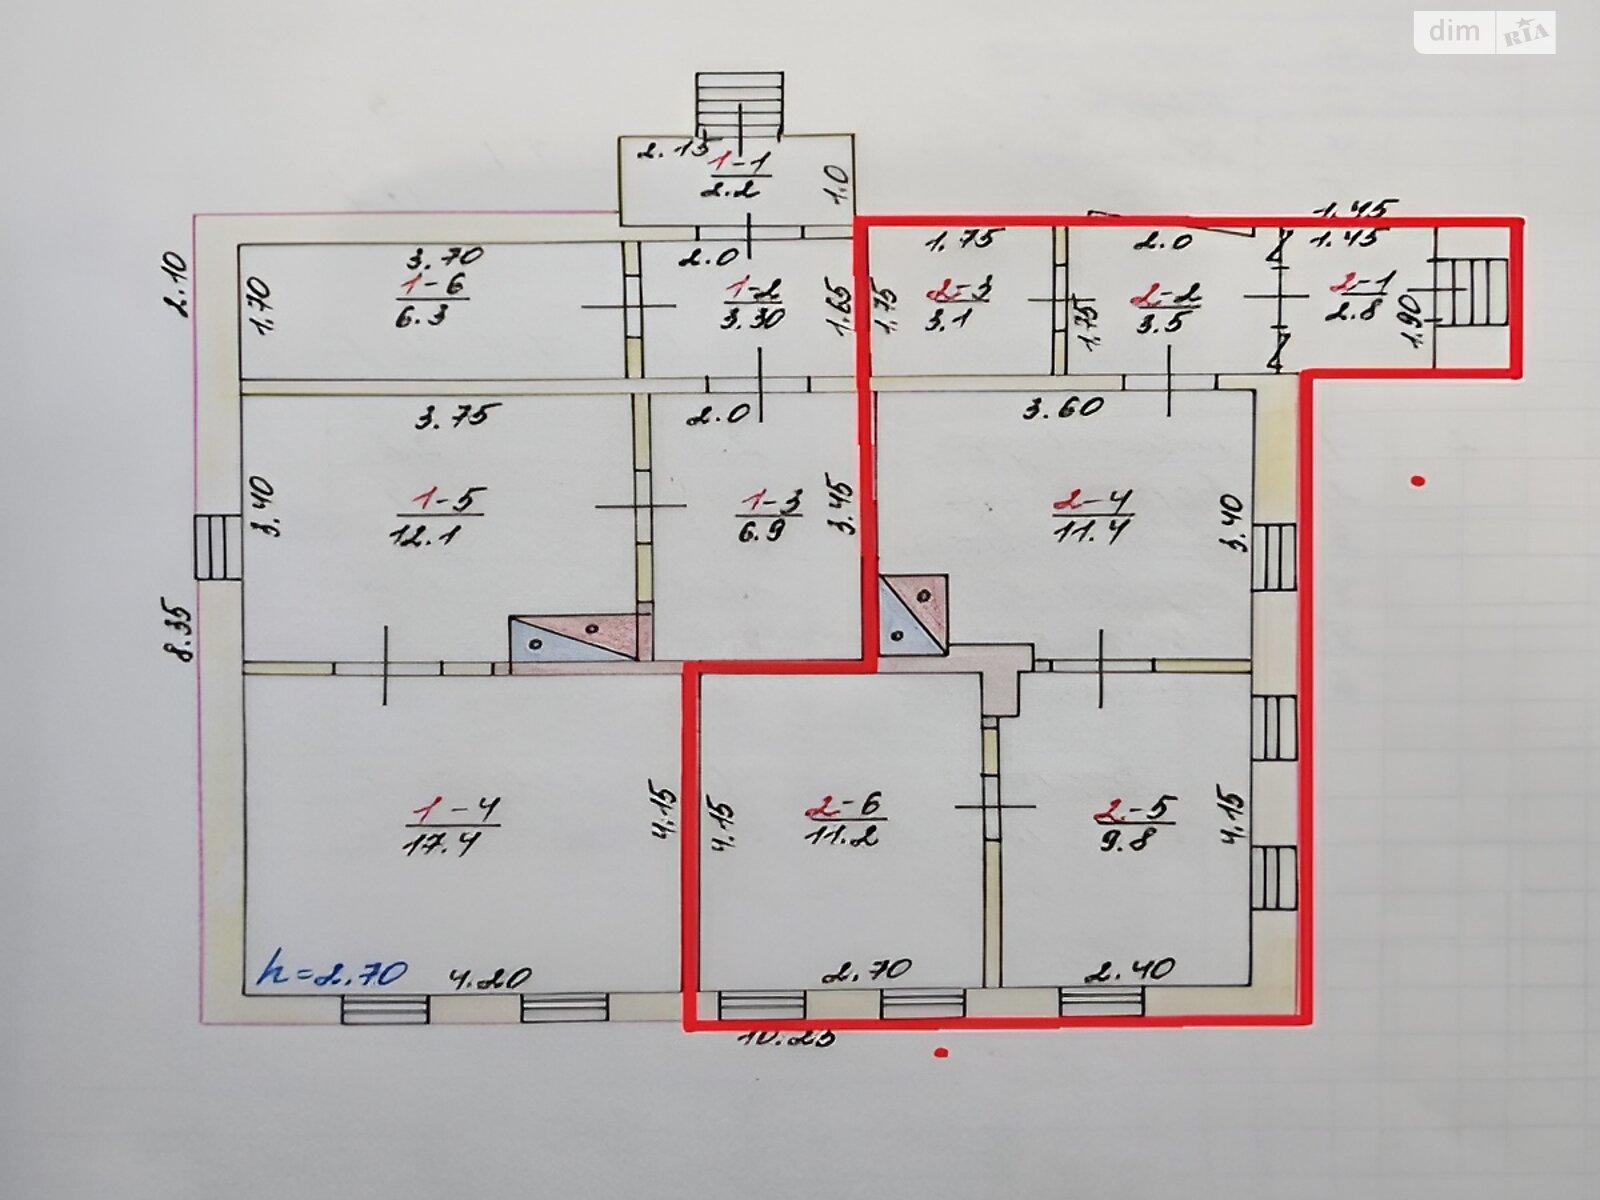 dim RIA
2.15
1-1
2.2
1.0
1.45
3.70
2.0
1.75
2.0
1.45
2.10
1.70
1-6
6.3
1-2
3.30
1.65
1.75
2-3
3.1
1.75
2-2
3.5
2-1
2.8
1.90
3.75
2.0
3.60
3.40
1-5
12.1
1-3
6.9
3.45
2-4
11.4
3.40
8.35
1-4
17.4
4.15
4.15
2-6
11.2
2-5
9.8
4.15
h=2.70
4.20
2.70
2.40
10.25